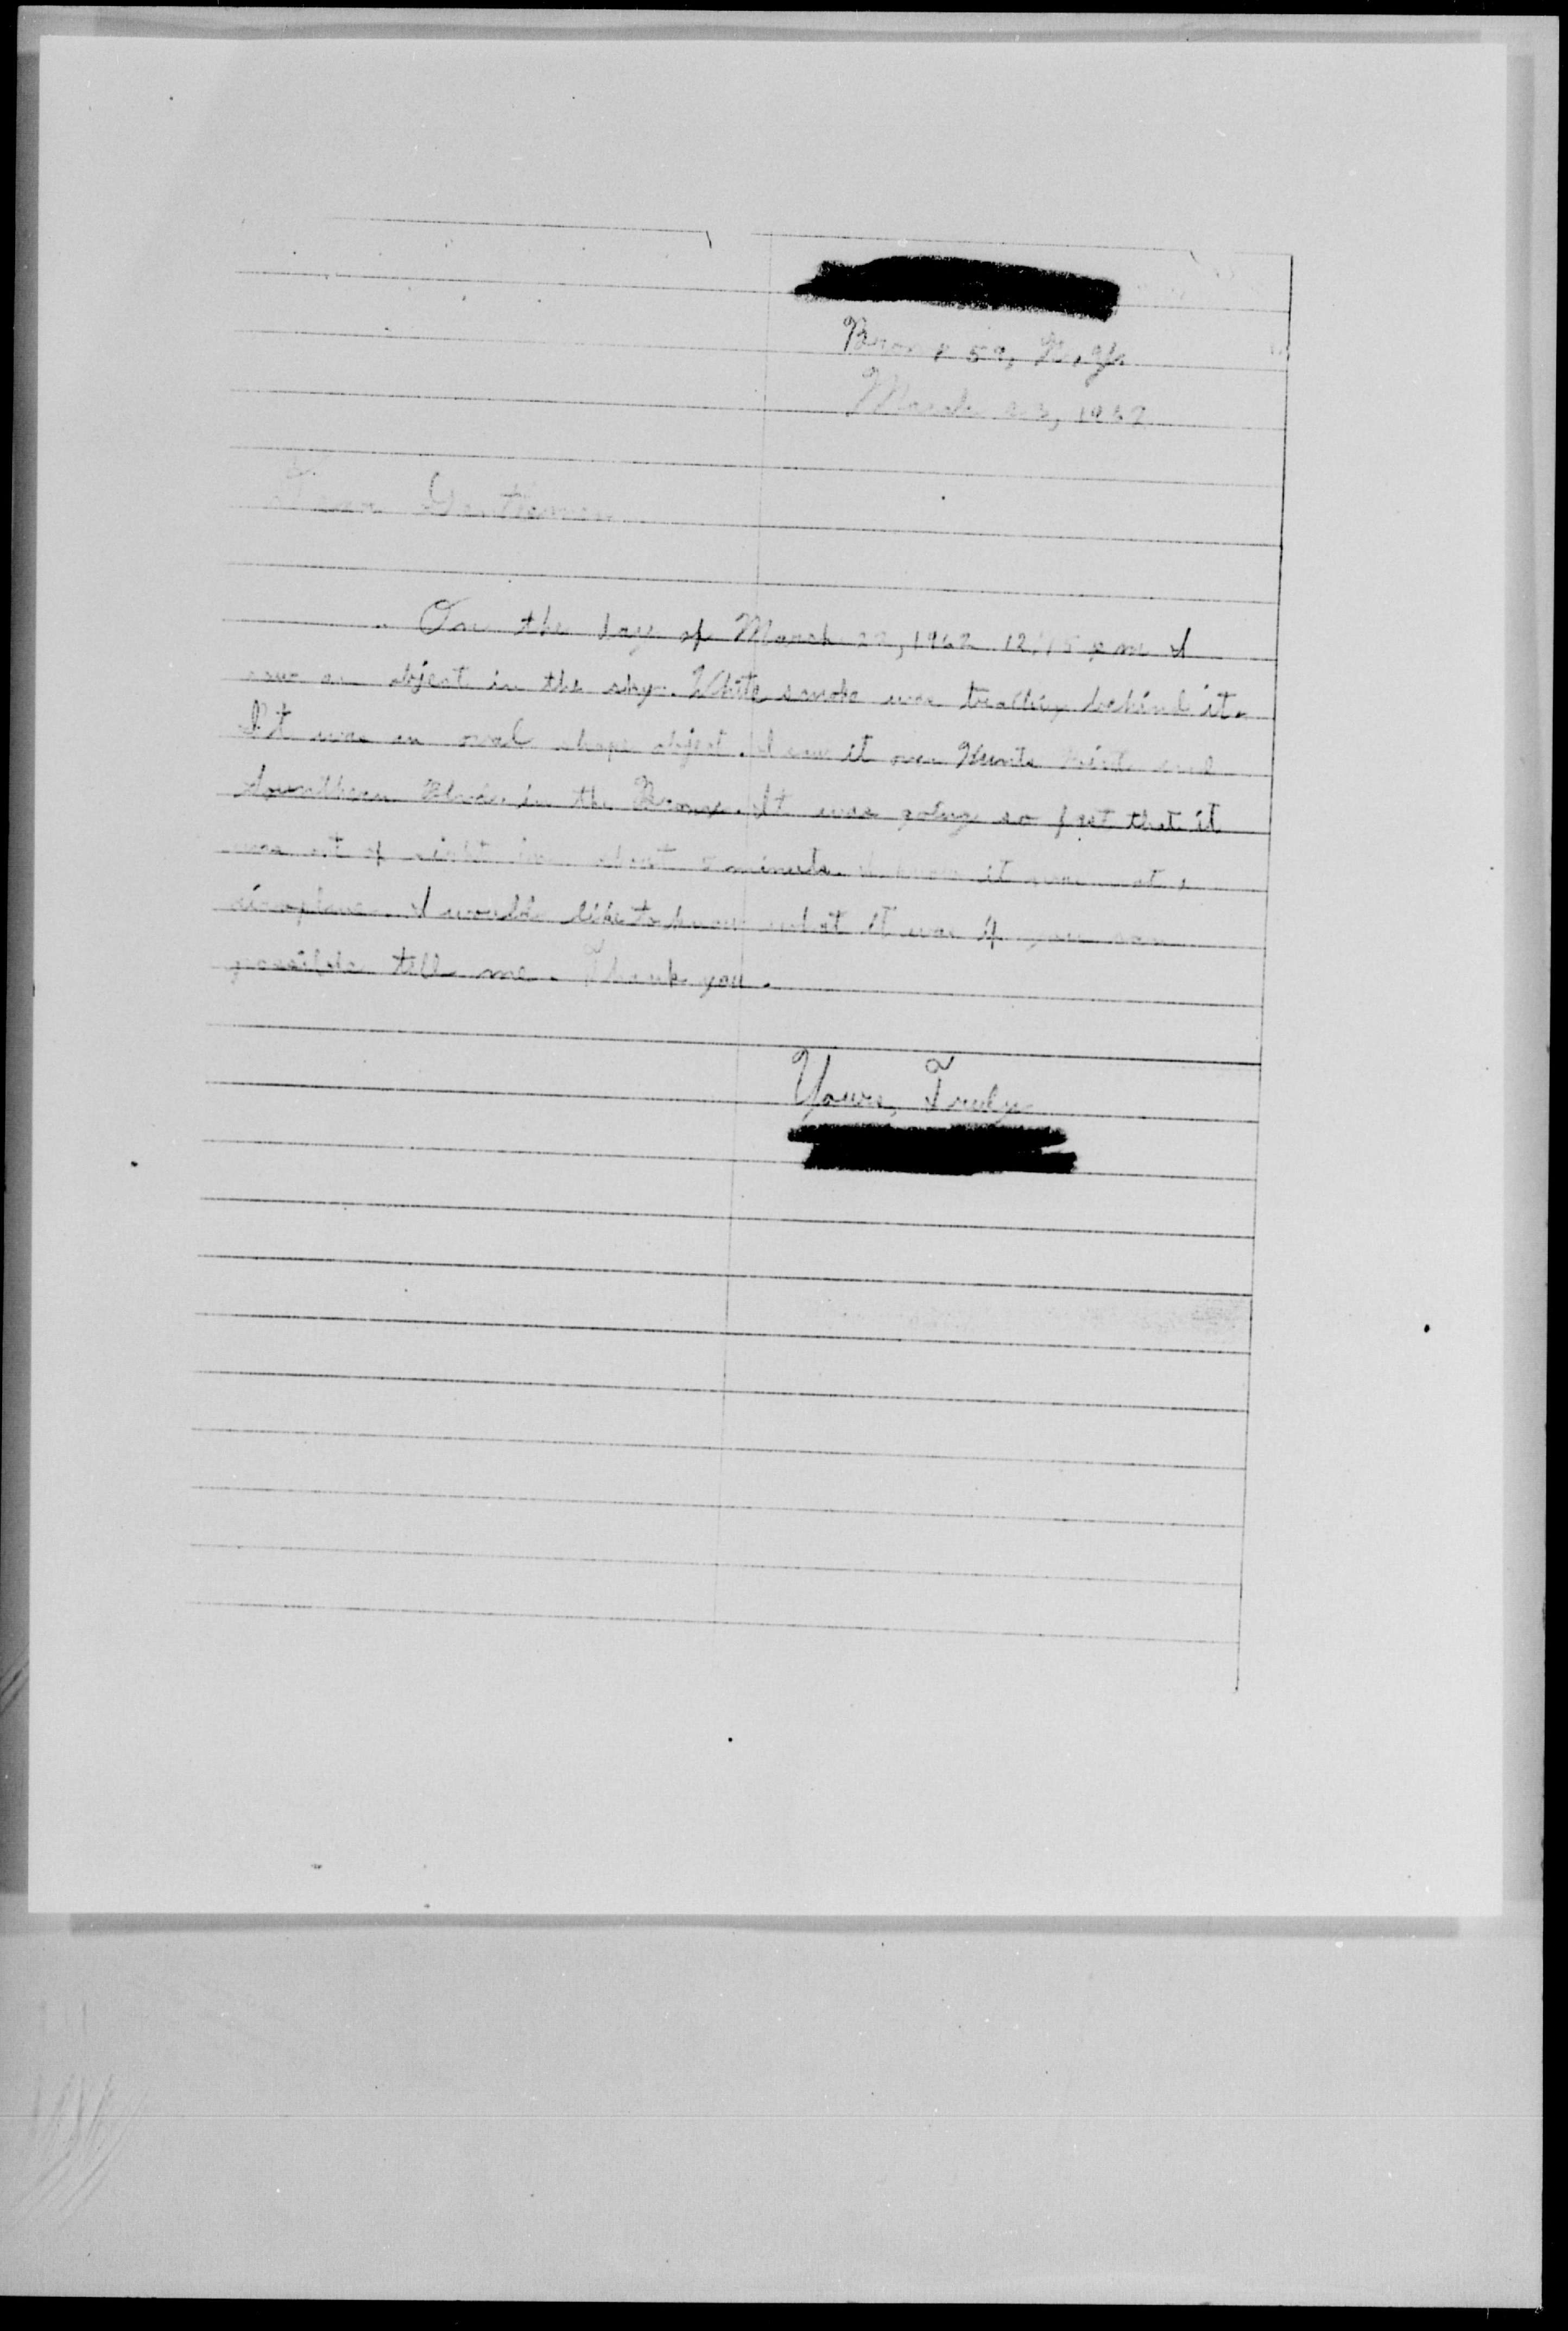 Bronx 59, N.Y.
March 23, 1962
Dear Gentlemen
On the day of March 22, 1962 12:15 p.m I
saw an object in the sky. White smoke was trailing behind it.
It was an oval shape object. I saw it over Hunts Point and
Sounthern Blvd. in the Bronx. It was going so fast that it
was out of sight in about minute. I know it was not a
airoplane. I would like to know what it was if you can
possible tell me. Thank you.
Yours, Truly